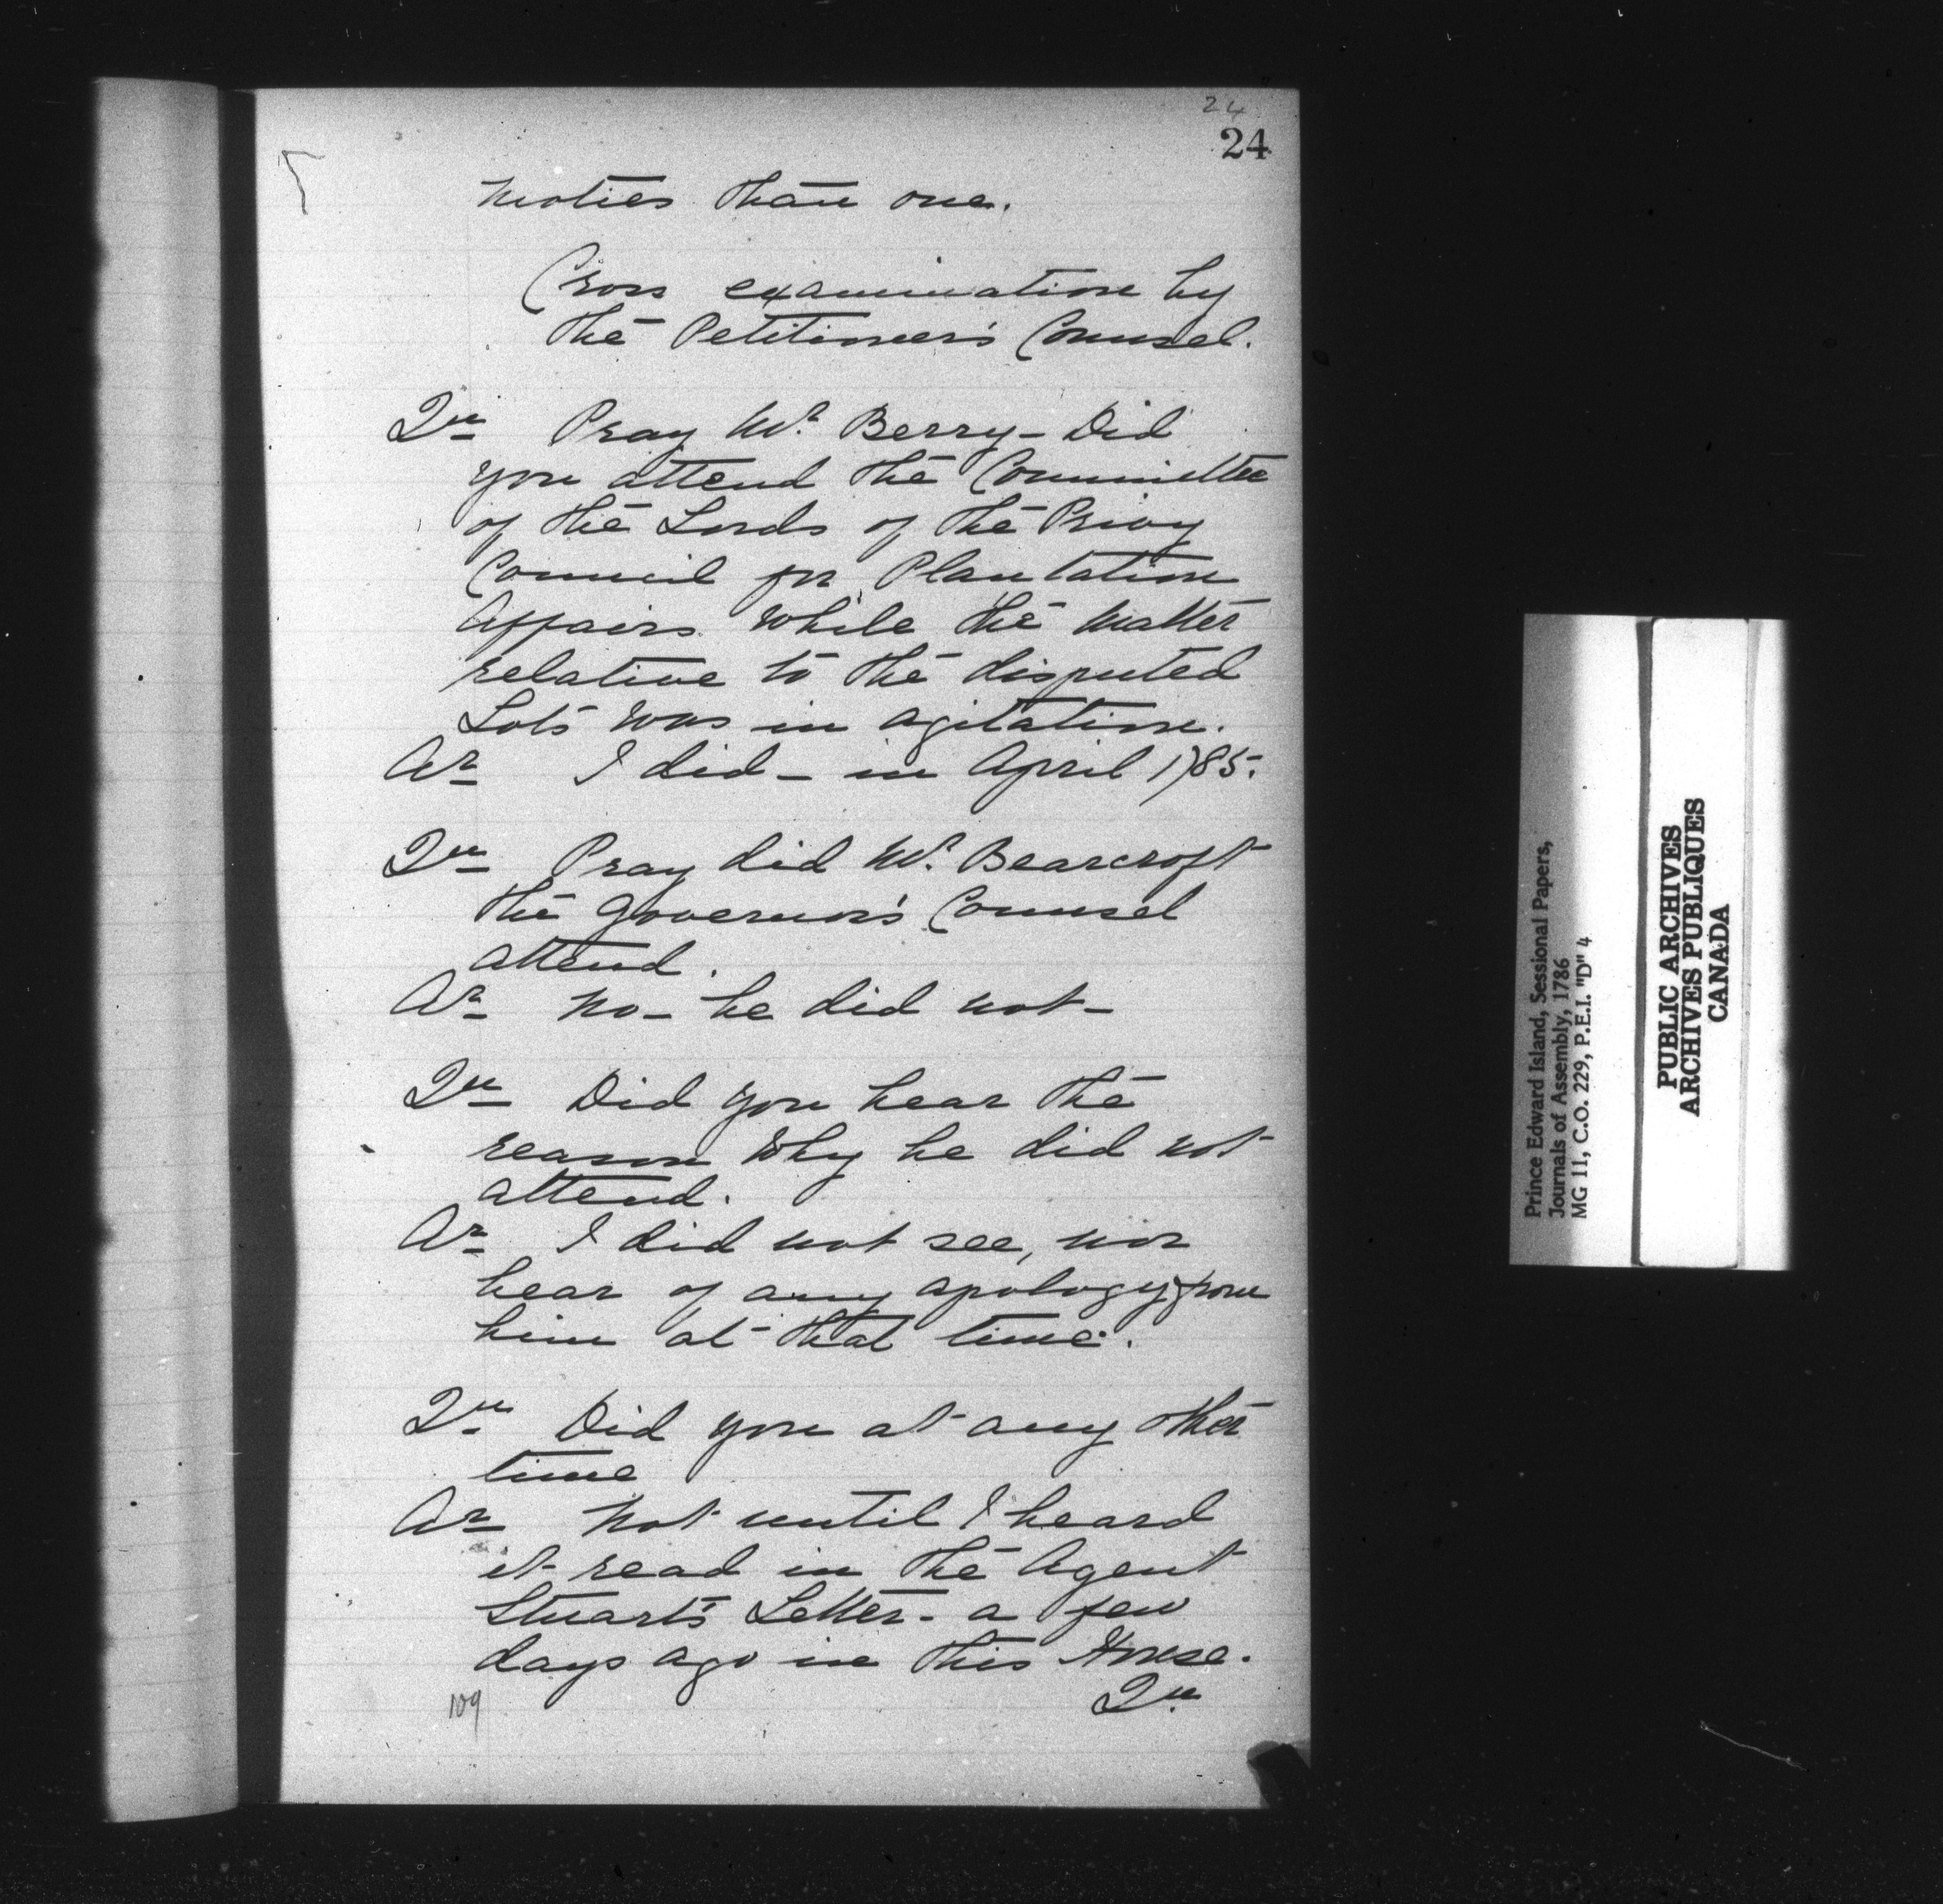 24
24
moties than one.
Cross examination by
the Petitioner's Counsel.
Qu Pray Mr. Berry - Did
you attend the Committee
of the Lords of the Privy
Council for Plantation
Affairs while the matter
relative to the disputed
Lots was in agitation.
Ar I did - in April 1785.
Qu Pray did Mr. Bearcroft
the Governor's Counsel
attend.
Ar No - he did not -
Qu Did you hear the
reason why he did not
attend.
Ar I did not see, nor
hear of any apology from
him at that time.
Qu. Did you at any other
time
Ar Not until I heard
it read in the Agent
Stuart's Letter - a few
days ago in this House.
Qu.
109
Prince Edward Island, Sessional Papers,
Journals of Assembly, 1786
MG 11, C.O. 229, P.E.I. "D" 4
PUBLIC ARCHIVES
ARCHIVES PUBLIQUES
CANADA